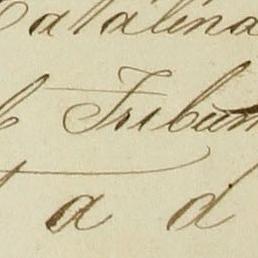 Catalina
Tribun
a d